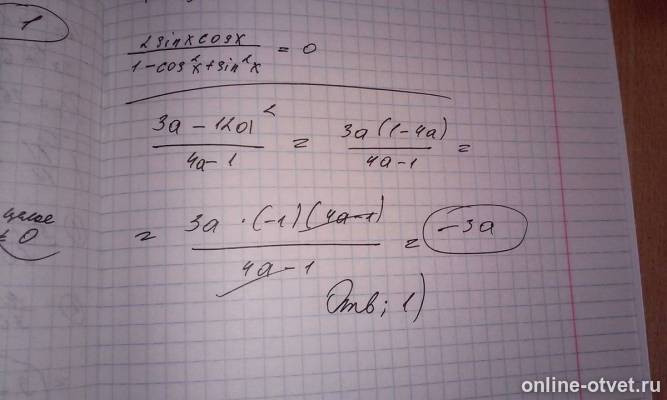 1
2sinxcosx / 1-cos²x+sin²x = 0
3a - 12a² / 4a-1 = 3a(1-4a) / 4a-1 =
целое
0
= 3a·(-1)(4a-1) / 4a-1 = -3a
Отв; 1)
online-otvet.ru